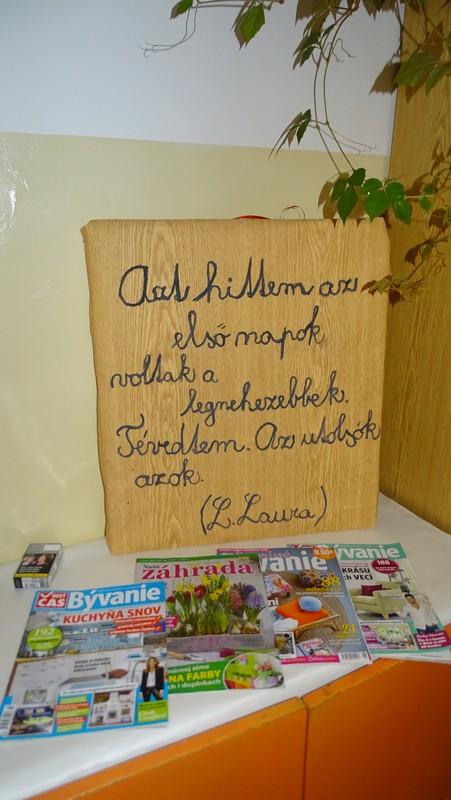 Azt hittem az
első napok
voltak a
legnehezebbek.
Tévedtem. Az utolsók
azok.
(L. Laura)
ČAS Bývanie
KUCHYŇA SNOV
192
Naša
záhrada
NA FARBY
ch i doplnkoch
vanie
0,80€
24
Bývanie
188
KRÁSU
ch VECÍ